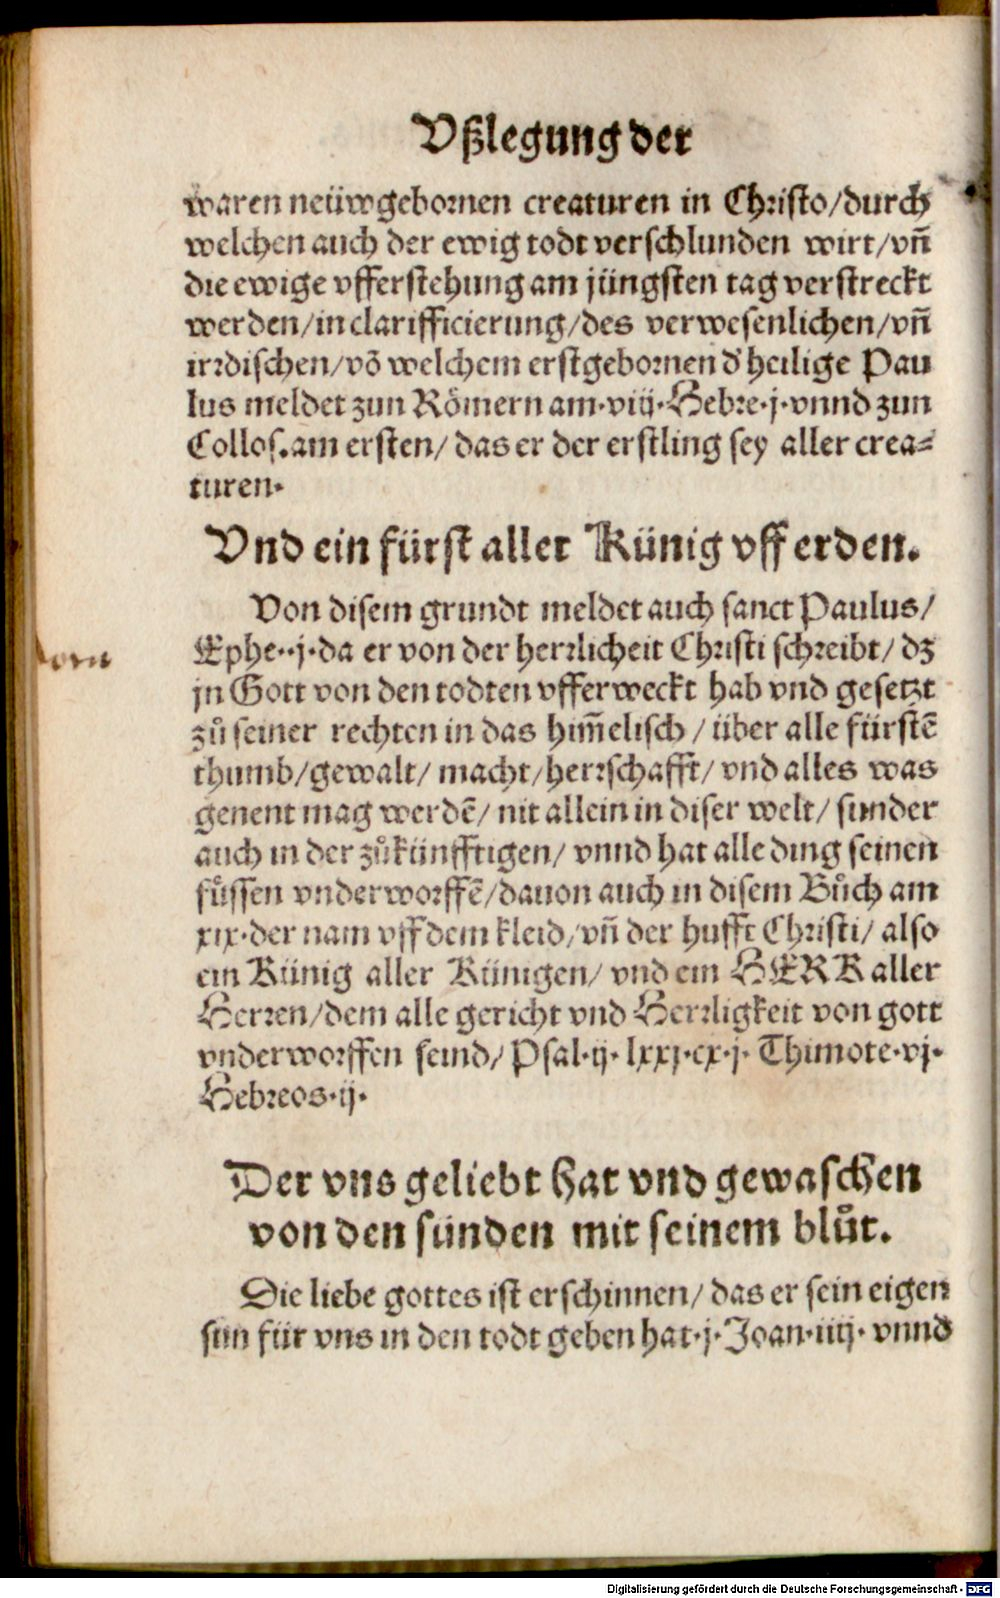 Vßlegung der
waren neüwgebornen creaturen in Christo/durch
welchen auch der ewig todt verschlunden wirt/vñ
die ewige vfferstehung am jüngsten tag verstreckt
werden/in clarifficierung/des verwesenlichen/vñ
irrdischen/võ welchem erstgebornen d' heilige Pau
lus meldet zun Römern am·viij·Hebre·j·vnnd zun
Collos.am ersten/ das er der erstling sey aller crea⸗
turen·
Vnd ein fürst aller Künig vff erden.
Von disem grundt meldet auch sanct Paulus/
Ephe··j·da er von der herrlicheit Christi schreibt/ dz
jn Gott von den todten vfferweckt hab vnd gesetzt
zů seiner rechten in das him̃elisch / über alle fürstẽ
thumb/gewalt/ macht/herrschafft/ vnd alles was
genent mag werdẽ/ nit allein in diser welt/ sunder
auch in der zůkünfftigen/ vnnd hat alle ding seinen
fůssen vnderworffẽ/dauon auch in disem Bůch am
xix·der nam vff dem kleid/vñ der hufft Christi/ also
ein Künig aller Künigen/ vnd ein HERR aller
Herren/dem alle gericht vnd Herrligkeit von gott
vnderworffen seind/ Psal·ij·lxxj·cx·j· Thimote·vj·
Hebreos·ij·
Der vns geliebt hat vnd gewaschen
von den sünden mit seinem blůt.
Die liebe gottes ist erschinnen/ das er sein eigen
sun für vns in den todt geben hat·j·Joan·iiij· vnnd
Digitalisierung gefördert durch die Deutsche Forschungsgemeinschaft - DFG